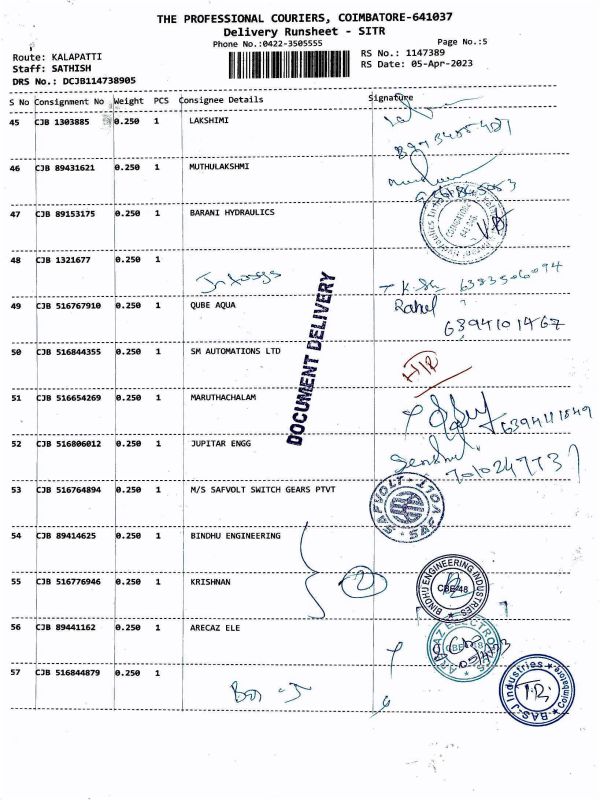 THE PROFESSIONAL COURIERS, COIMBATORE-641037
Delivery Runsheet - SITR
Phone No.:0422-3505555
Page No.:5
Route: KALAPATTI
RS No.: 1147389
Staff: SATHISH
RS Date: 05-Apr-2023
DRS No.: DCJB114738905
S No Consignment No Weight PCS Consignee Details Signature
45 CJB 1303885 0.250 1 LAKSHIMI
46 CJB 89431621 0.250 1 MUTHULAKSHMI
47 CJB 89153175 0.250 1 BARANI HYDRAULICS
48 CJB 1321677 0.250 1 6383506094
49 CJB 516767910 0.250 1 QUBE AQUA Rahul
6394101467
50 CJB 516844355 0.250 1 SM AUTOMATIONS LTD
DOCUMENT DELIVERY
51 CJB 516654269 0.250 1 MARUTHACHALAM
52 CJB 516806012 0.250 1 JUPITAR ENGG
53 CJB 516764894 0.250 1 M/S SAFVOLT SWITCH GEARS PTVT
SAFVOLT LTD
54 CJB 89414625 0.250 1 BINDHU ENGINEERING
BINDHU ENGINEERING INDUSTRIES
CBE-48
55 CJB 516776946 0.250 1 KRISHNAN
2
56 CJB 89441162 0.250 1 ARECAZ ELE
57 CJB 516844879 0.250 1
BAS-J Industries Coimbatore